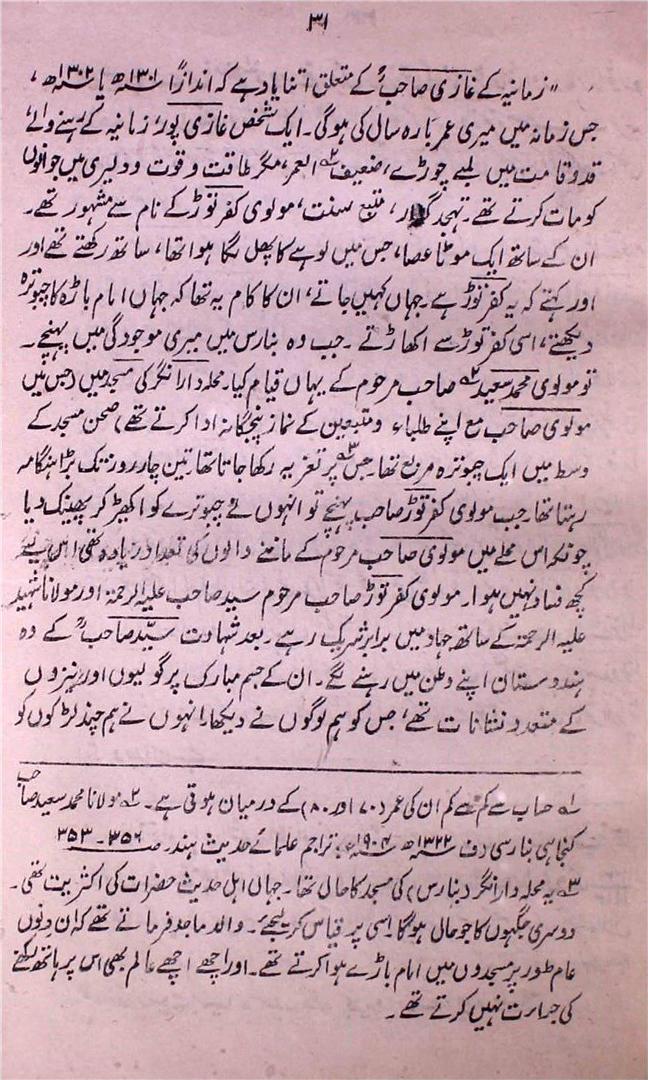 ۳۱
"زمانیہ کے غازی صاحبؒ کے متعلق اتنا یاد ہے کہ اندازاً ۱۳۰۱ھ یا ۱۳۰۲ھ،
جس زمانہ میں میری عمر بارہ سال کی ہوگی۔ ایک شخص غازی پور، زمانیہ کے رہنے والے،
قدوقامت میں لمبے چوڑے، ضعیف العمر، مگر طاقت و قوت و دلیری میں جوانوں
کو مات کرتے تھے۔ تہجد گزار، متبع سنت، مولوی کفر توڑ کے نام سے مشہور تھے۔
ان کے ساتھ ایک موٹا عصا، جس میں لوہے کا پھل لگا ہوا تھا، ساتھ رکھتے تھے اور
اور کہتے کہ یہ کفر توڑ ہے۔ جہاں کہیں جاتے، ان کا کام یہ تھا کہ جہاں امام باڑہ کا چبوترہ
دیکھتے، اسی کفر توڑ سے اکھاڑتے۔ جب وہ بنارس میں میری موجودگی میں پہنچے۔
تو مولوی محمد سعید۲ صاحب مرحوم کے یہاں قیام کیا۔ محلہ دارانگر کی مسجد میں (جس میں
مولوی صاحب مع اپنے طلباء و متبعین کے نماز پنجگانہ ادا کرتے تھے) صحن مسجد کے
وسط میں ایک چبوترہ مربع تھا۔ جس۳ پر تعزیہ رکھا جاتا تھا۔ تین چار روز تک بڑا ہنگامہ
رہتا تھا۔ جب مولوی کفر توڑ صاحب پہنچے تو انہوں نے چبوترے کو اکھیڑ کر پھینک دیا
چونکہ اس محلے میں مولوی صاحب مرحوم کے ماننے والوں کی تعداد زیادہ تھی اس لیئے
کچھ فساد نہیں ہوا۔ مولوی کفر توڑ صاحب مرحوم سید صاحب علیہ الرحمۃ اور مولانا شہید
علیہ الرحمۃ کے ساتھ جہاد میں برابر شریک رہے۔ بعد شہادت سیّد صاحبؒ کے وہ
ہندوستان اپنے وطن میں رہنے لگے۔ ان کے جسم مبارک پر گولیوں اور نیزوں
کے متعدد نشانات تھے، جس کو ہم لوگوں نے دیکھا۔ انہوں نے ہم چند لڑکوں کو
۱ حساب سے کم سے کم ان کی عمر (۷۰ اور ۸۰) کے درمیان ہوتی ہے۔ ۲ مولانا محمد سعید صاحب
کنجاہی بنارسی (ف ۱۳۲۲ھ ۱۹۰۴ء) تراجم علمائے حدیث ہند ص ۳۵۶-۳۵۳
۳ یہ محلہ دارانگر (بنارس) کی مسجد کا حال تھا۔ جہاں اہل حدیث حضرات کی اکثریت تھی۔
دوسری جگہوں کا جو حال ہوگا اسی پر قیاس کر لیجئے۔ والد ماجد فرماتے تھے کہ ان دنوں
عام طور پر مسجدوں میں امام باڑے ہوا کرتے تھے۔ اور اچھے اچھے عالم بھی اس پر ہاتھ رکھنے
کی جرارت نہیں کرتے تھے۔